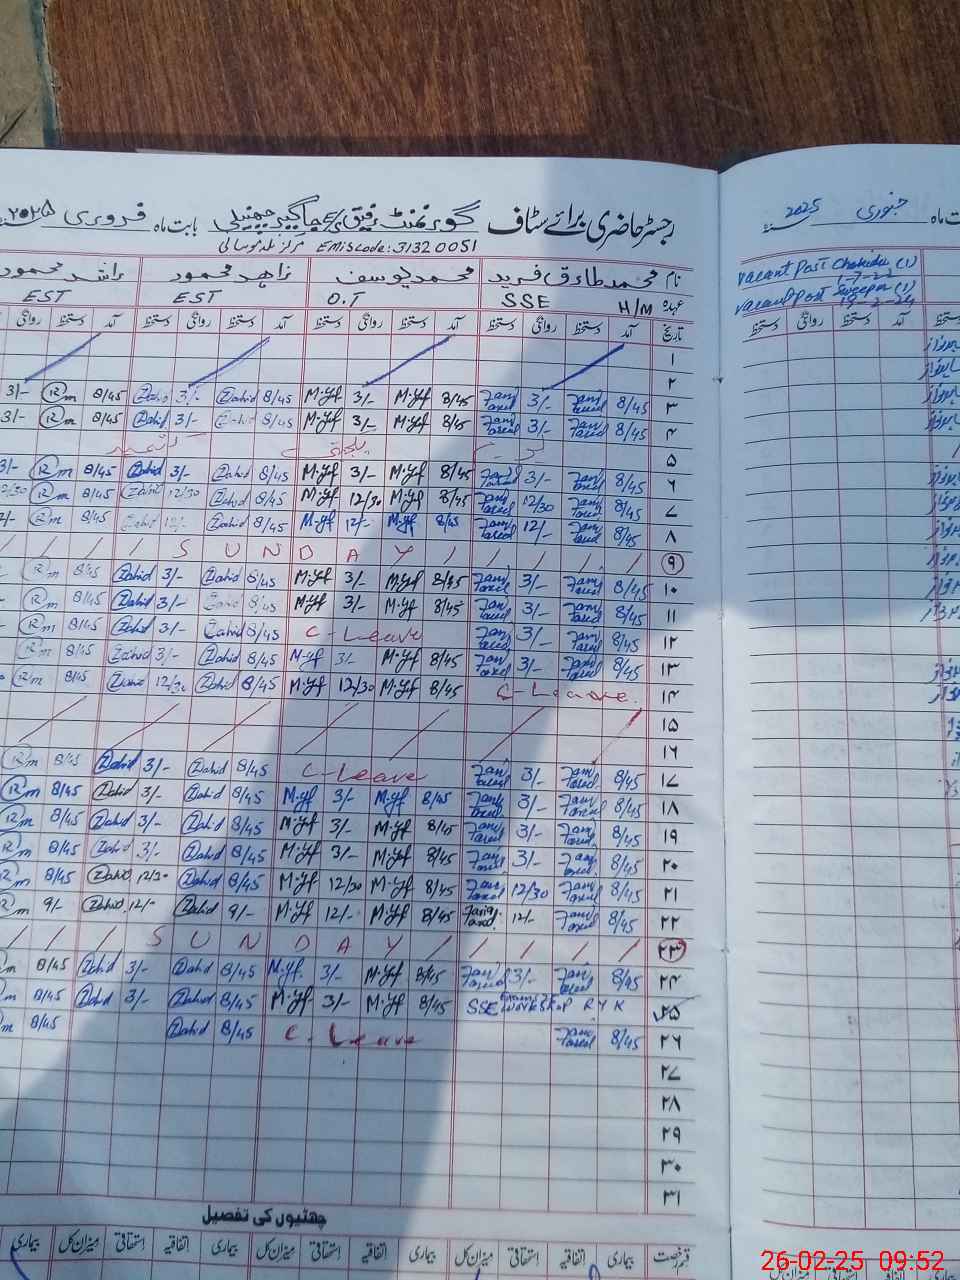 رجسٹر حاضری برائے سٹاف گورنمنٹ بابت ماہ فروری ۲۰۲۵
مرکز Emiscode: 31320051
نام محمد طارق فرید محمد یوسف زاہد محمود راشد محمود
عہدہ H/M SSE O.T EST EST
تاریخ آمد دستخط روانگی دستخط آمد دستخط روانگی دستخط آمد دستخط روانگی دستخط آمد دستخط روانگی
۱
۲
۳ 8/45 Tariq Fareed 3/- Tariq Fareed 8/45 M.Yf 3/- M.Yf 8/45 Zahid 3/- Zahid 8/45 Rm 3/-
۴ 8/45 Tariq Fareed 3/- Tariq Fareed 8/45 M.Yf 3/- M.Yf 8/45 Zahid 3/- Zahid 8/45 Rm 3/-
۵ یکجہتی کشمیر
۶ 8/45 Tariq Fareed 3/- Tariq Fareed 8/45 M.Yf 3/- M.Yf 8/45 Zahid 3/- Zahid 8/45 Rm 3/-
۷ 8/45 Tariq Fareed 12/30 Tariq Fareed 8/45 M.Yf 12/30 M.Yf 8/45 Zahid 12/30 Zahid 8/45 Rm 12/30
۸ 8/45 Tariq Fareed 12/- Tariq Fareed 8/45 M.Yf 12/- M.Yf 8/45 Zahid 12/- Zahid 8/45 Rm
۹ SUNDAY
۱۰ 8/45 Tariq Fareed 3/- Tariq Fareed 8/45 M.Yf 3/- M.Yf 8/45 Zahid 3/- Zahid 8/45 Rm
۱۱ 8/45 Tariq Fareed 3/- Tariq Fareed 8/45 M.Yf 3/- M.Yf 8/45 Zahid 3/- Zahid 8/45 Rm
۱۲ 8/45 Tariq Fareed 3/- Tariq Fareed C-Leave 8/45 Zahid 3/- Zahid 8/45 Rm
۱۳ 8/45 Tariq Fareed 3/- Tariq Fareed 8/45 M.Yf 3/- M.Yf 8/45 Zahid 3/- Zahid 8/45 Rm
۱۴ C-Leave 8/45 M.Yf 12/30 M.Yf 8/45 Zahid 12/30 Zahid 8/45 Rm
۱۵
۱۶
۱۷ 8/45 Tariq Fareed 3/- Tariq Fareed C-Leave 8/45 Zahid 3/- Zahid 8/45 Rm
۱۸ 8/45 Tariq Fareed 3/- Tariq Fareed 8/45 M.Yf 3/- M.Yf 8/45 Zahid 3/- Zahid 8/45 Rm
۱۹ 8/45 Tariq Fareed 3/- Tariq Fareed 8/45 M.Yf 3/- M.Yf 8/45 Zahid 3/- Zahid 8/45 Rm
۲۰ 8/45 Tariq Fareed 3/- Tariq Fareed 8/45 M.Yf 3/- M.Yf 8/45 Zahid 3/- Zahid 8/45 Rm
۲۱ 8/45 Tariq Fareed 12/30 Tariq Fareed 8/45 M.Yf 12/30 M.Yf 8/45 Zahid 12/30 Zahid 8/45 Rm
۲۲ 8/45 Tariq Fareed 12/- Tariq Fareed 8/45 M.Yf 12/- M.Yf 9/- Zahid 12/- Zahid 9/- Rm
۲۳ SUNDAY
۲۴ 8/45 Tariq Fareed 3/- Tariq Fareed 8/45 M.Yf 3/- M.Yf 8/45 Zahid 3/- Zahid 8/45 Rm
۲۵ SSE WORKSHOP RYK 8/45 M.Yf 3/- M.Yf 8/45 Zahid 3/- Zahid 8/45 Rm
۲۶ 8/45 Tariq Fareed C-Leave 8/45 Zahid 8/45 Rm
۲۷
۲۸
۲۹
۳۰
۳۱
چھٹیوں کی تفصیل
قسم رخصت بیماری اتفاقیہ استحقاقی میزان کل بیماری اتفاقیہ استحقاقی میزان کل بیماری اتفاقیہ استحقاقی میزان کل بیماری
ماہ جنوری 2025
Vacant Post Chokidar (1)
Vacant Post Sweeper (1)
آمد دستخط روانگی دستخط
26-02-25 09:52